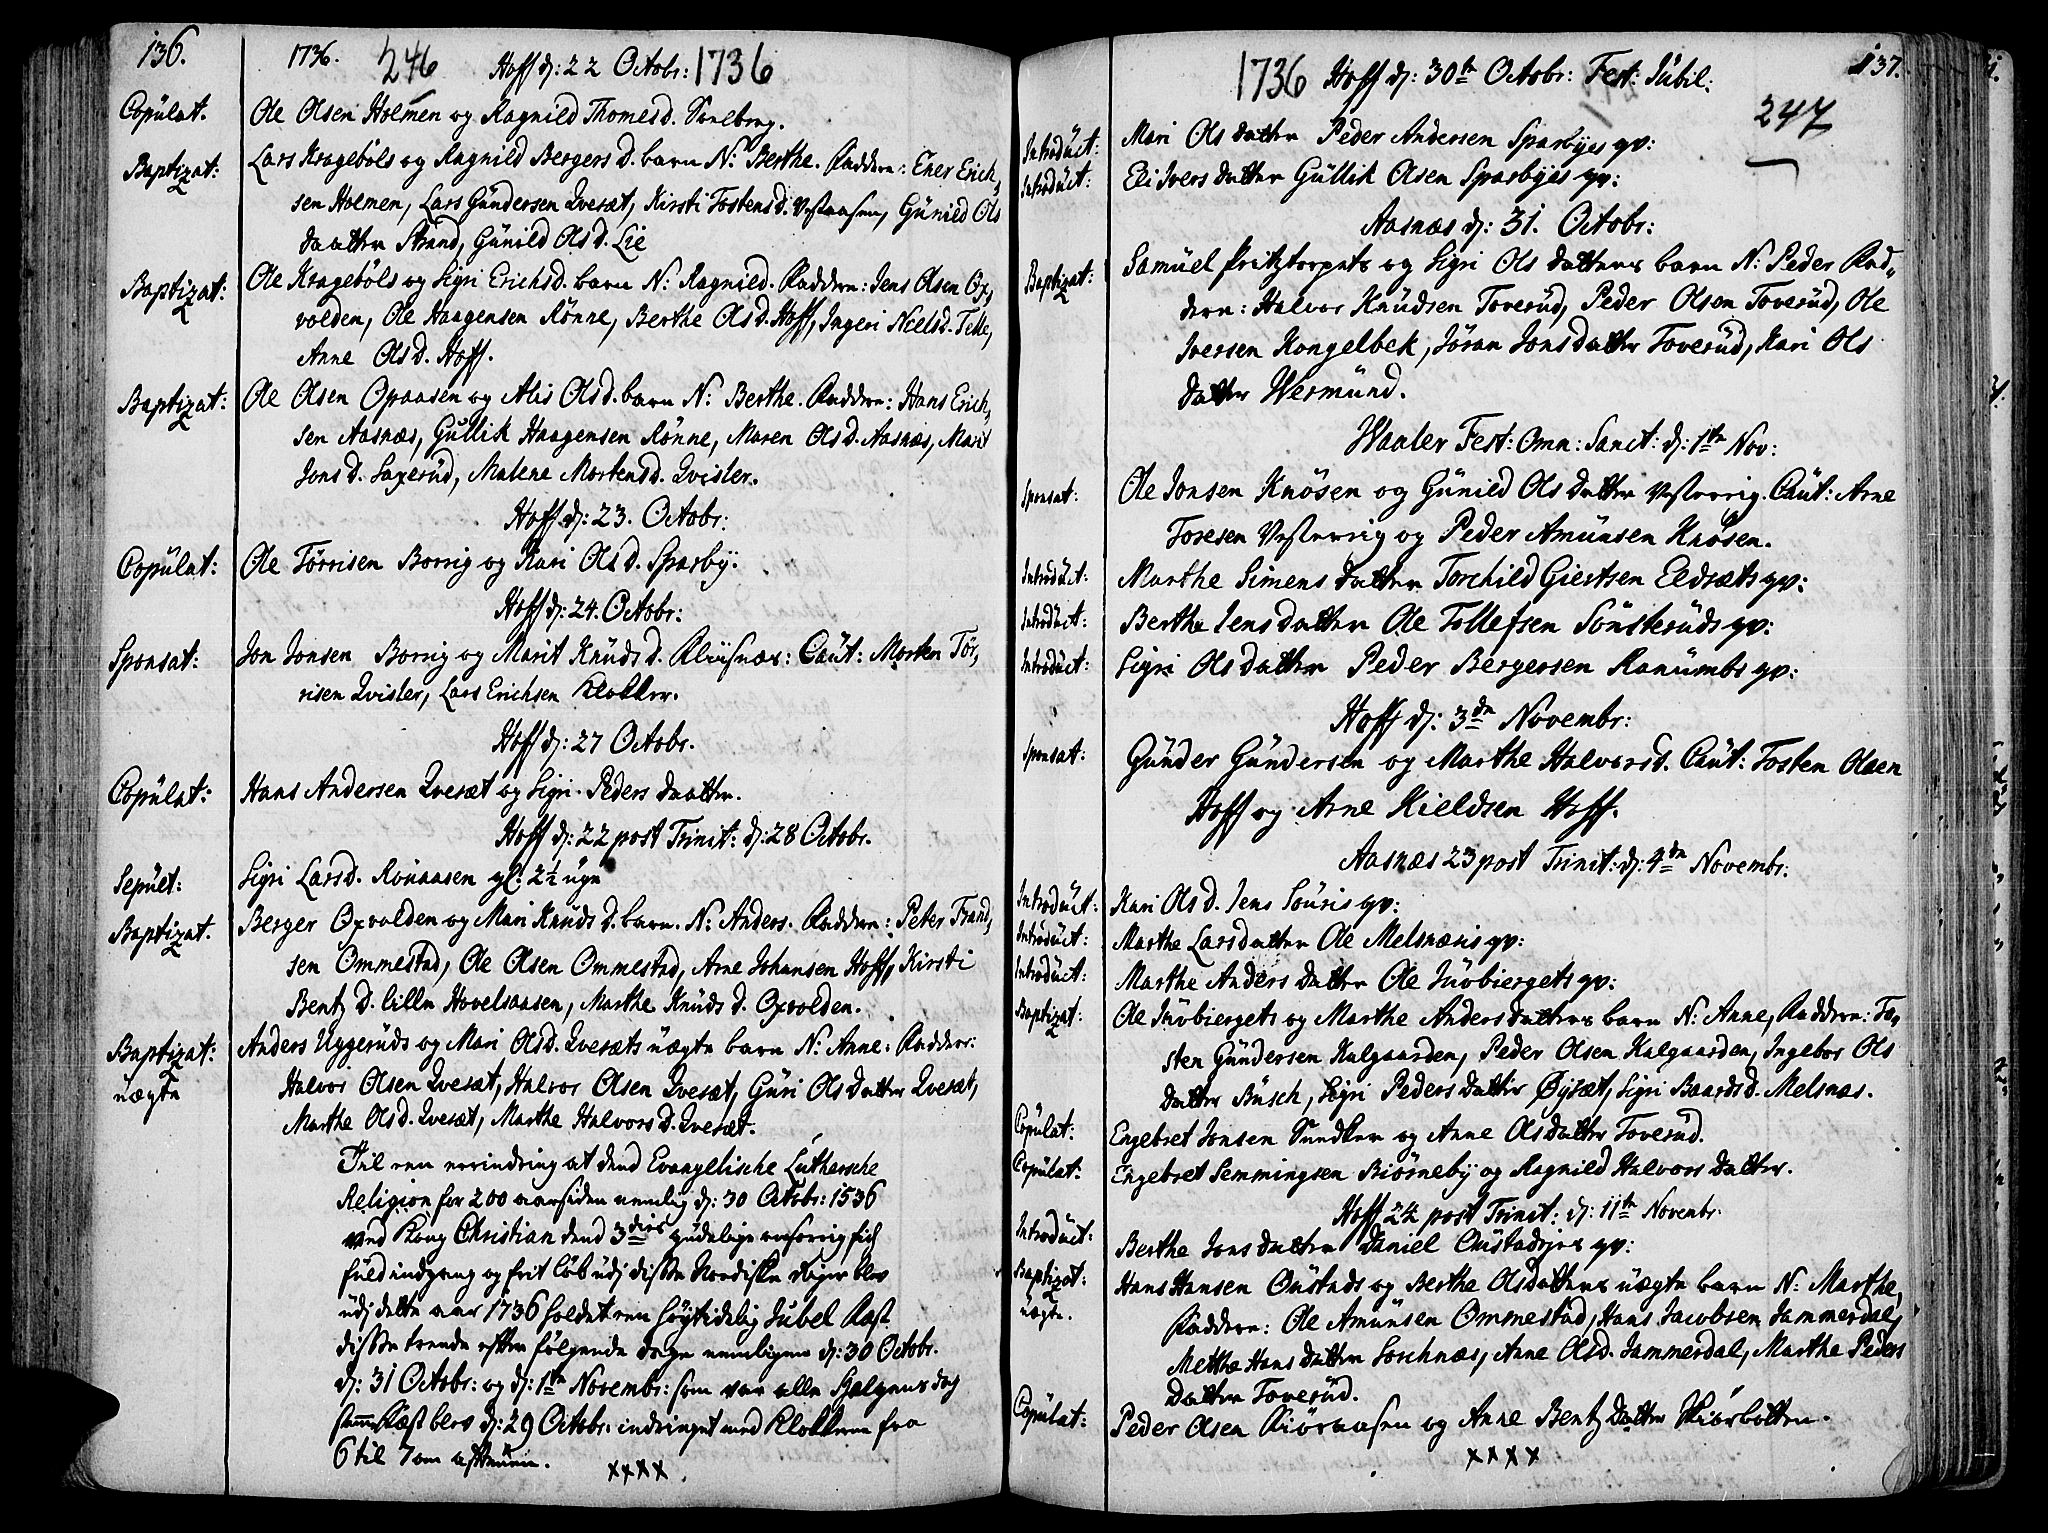 136. 1736. 246 Hoff d: 22 Octobr: 1736
Copulat. Ole Olsen Holmen og Ragnild Thomesd. Sneberg.
Baptizat: Lars Kragebøls og Ragnild Bergers D. barn N: Berthe. Faddere: Ener Erich,
sen Holmen, Lars Gündersen Qvesæt, Kirsti Tostensd. Vestaasen, Günild Ols
daatter Strand, Günild Ols d. Lie
Baptizat: Ole Kragebøls og Sigri Erichsd. barn N: Ragnild. Faddere: Jens Olsen Ox,
volden, Ole Haagensen Rønne, Berthe Ols d. Hoff, Ingeri Nielsd. Telle,
Anne Ols d. Hoff.
Baptizat: Ole Olsen Opaasen og Alis Ols d. barn N: Berthe. Faddere: Hans Erich,
sen Aasnæs, Gullik Haagensen Rønne, Maren Ols d. Aasnæs, Marit
Jons d. Saxerüd, Malene Mortensd. Qvisler.
Hoff d: 23. Octobr:
Copülat: Ole Törrisen Borrig og Kari Ols d. Sparby.
Hoff d: 24. Octobr:
Sponsat: Jon Jonsen Borrig og Marit Knüds d. Kliisnæs: Caüt: Morten Tör,
risen Qvisler, Lars Erichsen Klokker.
Hoff d: 27 Octobr.
Copülat: Hans Andersen Qvesæt og Sigri Peders daatter.
Hoff d: 22 post Trinit: d: 28 Octobr.
Sepült: Sigri Larsd. Rönaasen gl: 2½ uge
Baptizat. Berger Oxvolden og Mari Knüds d. barn. N: Anders. Faddere: Peter Trand,
sen Ommestad, Ole Olsen Ommestad, Arne Johansen Hoff, Kirsti
Bentz d. lille Hovelsaasen, Marthe Knüds d. Oxvolden.
Baptizat: Anders Uggerüds og Mari Ols d. Qvesæts uægte barn N: Anne. Faddere:
uægte Halvor Olsen Qvesæt, Halvor Olsen Qvesæt, Güri Ols datter Qvesæt,
Marthe Ols d. Qvesæt, Marthe Halvors d. Qvesæt.
Til een erindring at dend Evangelische Lüthersche
Religion for 200 aar siden nemlig d: 30 Octobr: 1536
ved Kong Christian dend 3dies gudelige omsorrig fich
fuld indgang og frit løb udj disse Nordiske Riger blev
udj dette aar 1736 holdet een høytidelig Jubel Fæst
disse trende efter følgende dage nemligen d: 30 Octobr.
d: 31 Octobr: og d: 1te Novembr: som var alle Helgens dag
samme Fæst blev d: 29 Octobr: indringet med Klokkene fra
6 til 7 om aftenen. xxxx.
1736 Hoff d: 30te Octobr: Fest: Jübil: 137.
247
Introdüct: Mari Ols datter Peder Andersen Sparbyes qv:
Introdüct: Eli Ivers datter Gullik Olsen Sparbyes qv:
Aasnæs d: 31. Octobr:
Baptizat: Samüel Fritztorpets og Sigri Ols datters barn N: Peder Fad,
dere: Halvor Knüdsen Toverüd, Peder Olsen Toverüd, Ole
Iversen Kongelbek, Jöran Jons datter Toverüd, Kari Ols
datter Wermünd.
Waaler Fest: Omn: Sanct: d: 1te Nov:
Sponsat: Ole Jonsen Knösen og Günild Ols datter Vesterrig. Caüt: Arne
Toresen Vesterrig og Peder Amünsen Knösen.
Introdüct: Marthe Simens datter Torchild Giertsen Eldsæts qv:
Introdüct: Berthe Jens datter Ole Tollefsen Sönsterüds qv:
Introdüct: Sigri Ols datter Peder Bergersen Ranümbs qv:
Hoff d: 3de Novembr:
Sponsat: Günder Gündersen og Marthe Halvorsd. Caüt: Tosten Olsen
Hoff og Arne Kieldsen Hoff.
Aasnæs 23 post Trinit: d: 4de Novembr:
Introdüct: Kari Ols d. Jens Souris qv:
Introdüct: Marthe Lars datter Ole Melsnæsis qv:
Introdüct: Marthe Anders datter Ole Juvbiergets qv:
Baptizat: Ole Juvbiergets og Marthe Anders datters barn N: Anne, Faddere: To,
sten Gündersen Kalgaarden, Peder Olsen Kalgaarden, Ingebor Ols
datter Büsch, Sigri Peders datter Øysæt, Sigri Baards d. Melsnæs.
Copülat: Engebret Jonsen Sundker og Anne Ols datter Toverüd.
Copülat: Engebret Semmingsen Biörneby og Ragnild Halvors datter.
Hoff 24 post Trinit: d: 11te Novembr.
Introdüct: Berthe Jons datter Daniel Oustadejes qv:
Baptizat: Hans Hansen Oustads og Berthe Ols datters uægte barn N: Marthe,
uægte. Faddere: Ole Amünsen Ommestad, Hans Jacobsen Jammerdal,
Metthe Hans datter Sorchnæs, Anne Ols d. Jammerdal, Marthe Peders
datter Toverüd.
Copülat: Peder Olsen Kiöraasen og Anne Bentz datter Kiörbolten.
xxxx